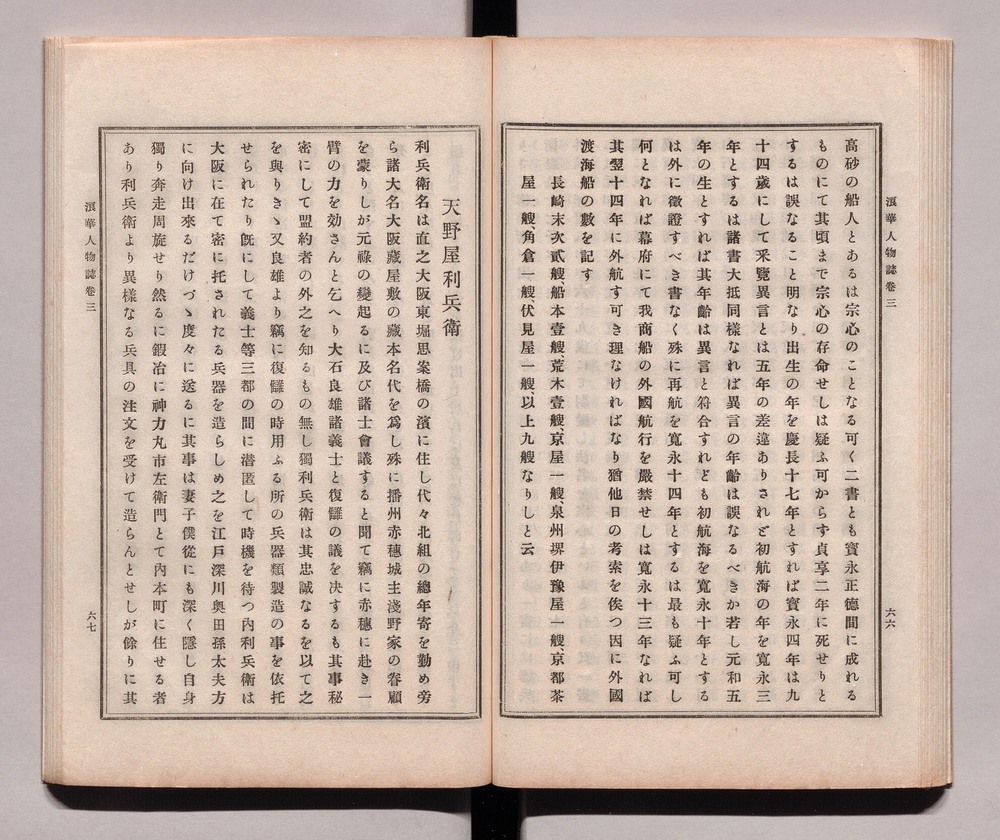 浪華人物誌卷三
六六
高砂の船人とあるは宗心のことなる可く二書とも寶永正德間に成れる
ものにて其頃まで宗心の存命せしは疑ふ可からず貞享二年に死せりと
するは誤なること明なり出生の年を慶長十七年とすれば寶永四年は九
十四歳にして釆覽異言とは五年の差違ありされど初航海の年を寬永三
年とするは諸書大抵同樣なれば異言の年齡は誤なるべきか若し元和五
年の生とすれば其年齡は異言と符合すれども初航海を寬永十年とする
は外に徵證すべき書なく殊に再航を寬永十四年とするは最も疑ふ可し
何となれば幕府にて我商船の外國航行を嚴禁せしは寬永十三年なれば
其翌十四年に外航す可き理なければなり猶他日の考索を俟つ因に外國
渡海船の數を記す
長崎末次貳艘、船本壹艘、荒木壹艘、京屋一艘、泉州堺伊豫屋一艘、京都茶
屋一艘、角倉一艘、伏見屋一艘、以上九艘なりしと云
天野屋利兵衞
利兵衞名は直之大阪東堀思案橋の濱に住し代々北組の總年寄を勤め旁
ら諸大名大阪藏屋敷の藏本名代を爲し殊に播州赤穗城主淺野家の眷顧
を蒙りしが元祿の變起るに及び諸士會議すると聞て竊に赤穗に赴き一
臂の力を効さんと乞へり大石良雄諸義士と復讎の議を決するも其事秘
密にして盟約者の外之を知るもの無し獨利兵衞は其忠誠なるを以て之
を與りきゝ又良雄より竊に復讎の時用ふる所の兵器類製造の事を依托
せられたり旣にして義士等三都の間に潜匿して時機を待つ內利兵衞は
大阪に在て密に托されたる兵器を造らしめ之を江戶深川奧田孫太夫方
に向け出來るだけづゝ度々に送るに其事は妻子僕從にも深く隱し自身
獨り奔走周旋せり然るに鍜冶に神力丸市左衞門とて內本町に住せる者
あり利兵衞より異樣なる兵具の注文を受けて造らんとせしが餘りに其
浪華人物誌卷三
六七